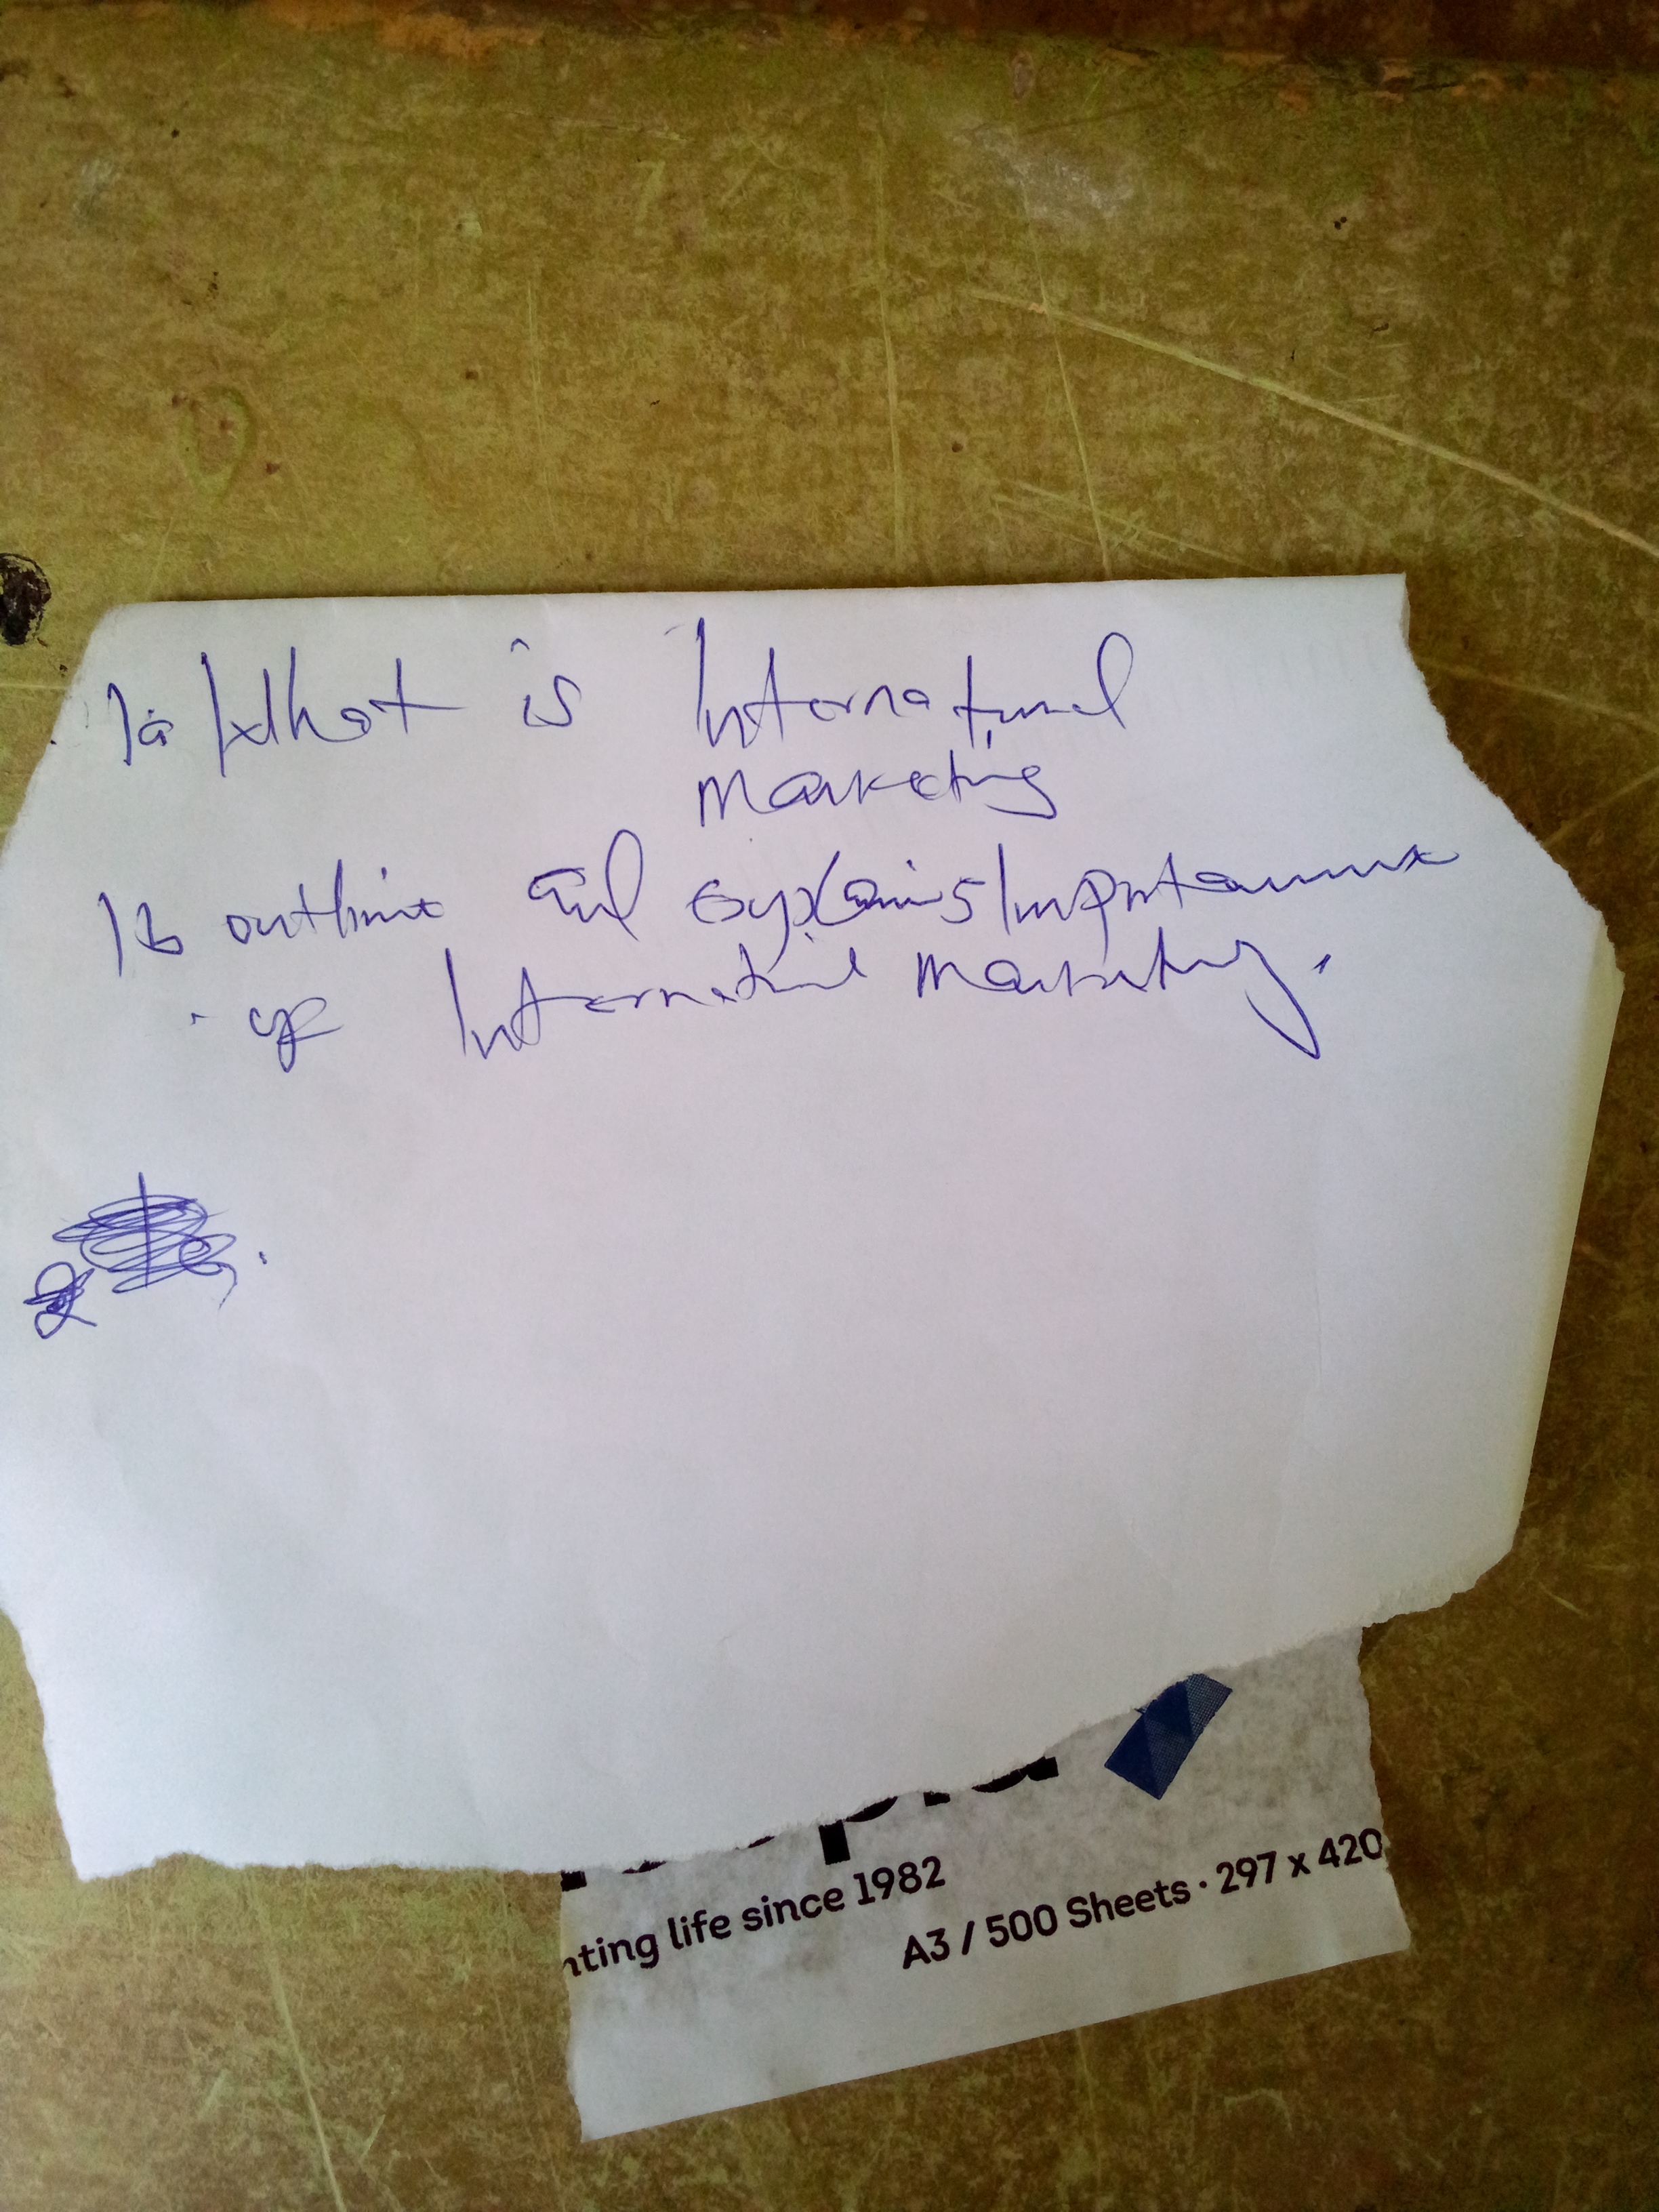 1a What is International
Marketing
1b outline and explain 5 Importance
of International Marketing.
2
nting life since 1982
A3 / 500 Sheets · 297 x 420